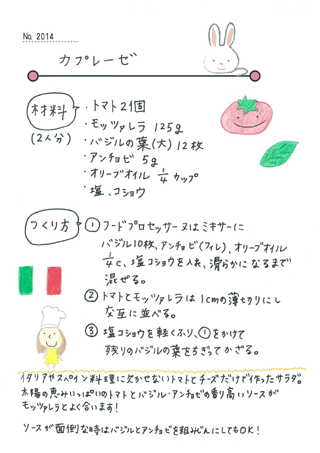 No. 2014
カプレーゼ
材料
(2人分)
・トマト2個
・モッツァレラ 125g
・バジルの葉(大) 12枚
・アンチョビ 5g
・オリーブオイル 1/4 カップ
・塩、コショウ
つくり方
① フードプロセッサー又はミキサーに
バジル10枚、アンチョビ(フィレ)、オリーブオイル
1/4c、塩コショウを入れ、滑らかになるまで
混ぜる。
② トマトとモッツァレラは1cmの薄切りにし
交互に並べる。
③ 塩コショウを軽くふり、①をかけて
残りのバジルの葉をちぎってかざる。
イタリアやスペイン料理に欠かせないトマトとチーズだけで作ったサラダ。
太陽の恵みいっぱいのトマトとバジル・アンチョビの香り高いソースが
モッツァレラとよく合います!
ソースが面倒な時はバジルとアンチョビを粗みじんにしてもOK!